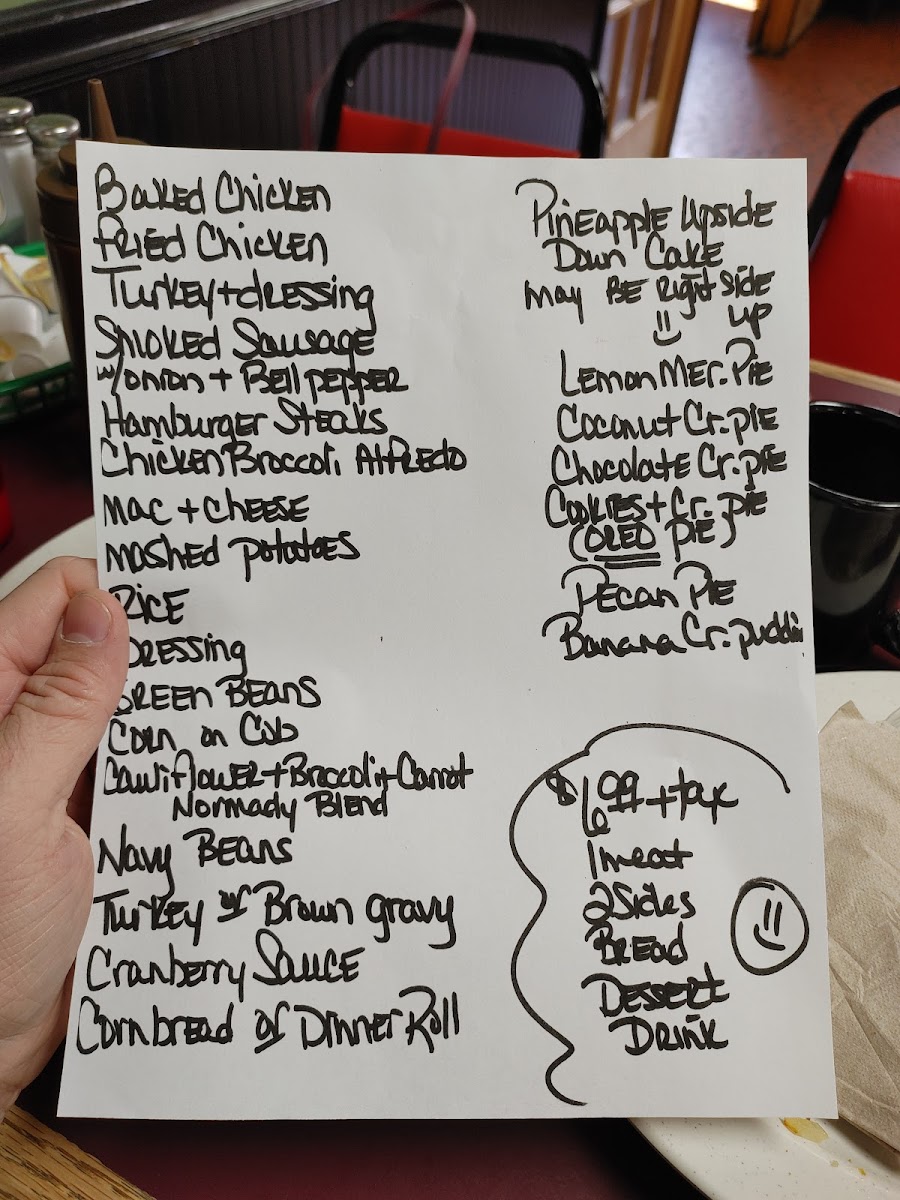 Baked Chicken
Fried Chicken
Turkey + dressing
Smoked Sausage
w/onion + Bell pepper
Hamburger Steaks
Chicken Broccoli Alfredo
Mac + Cheese
Mashed potatoes
Rice
Dressing
Green Beans
Corn on Cob
Cauliflower + Broccoli + Carrot
Normady Blend
Navy Beans
Turkey or Brown gravy
Cranberry Sauce
Cornbread or Dinner Roll
Pineapple Upside
Down Cake
may Be Right Side
up
Lemon Mer. Pie
Coconut Cr. pie
Chocolate Cr. pie
Cookies + Cr. pie
(OREO pie)
Pecan Pie
Banana Cr. puddin
$6.99 + tax
1 meat
2 Sides
Bread
Dessert
Drink